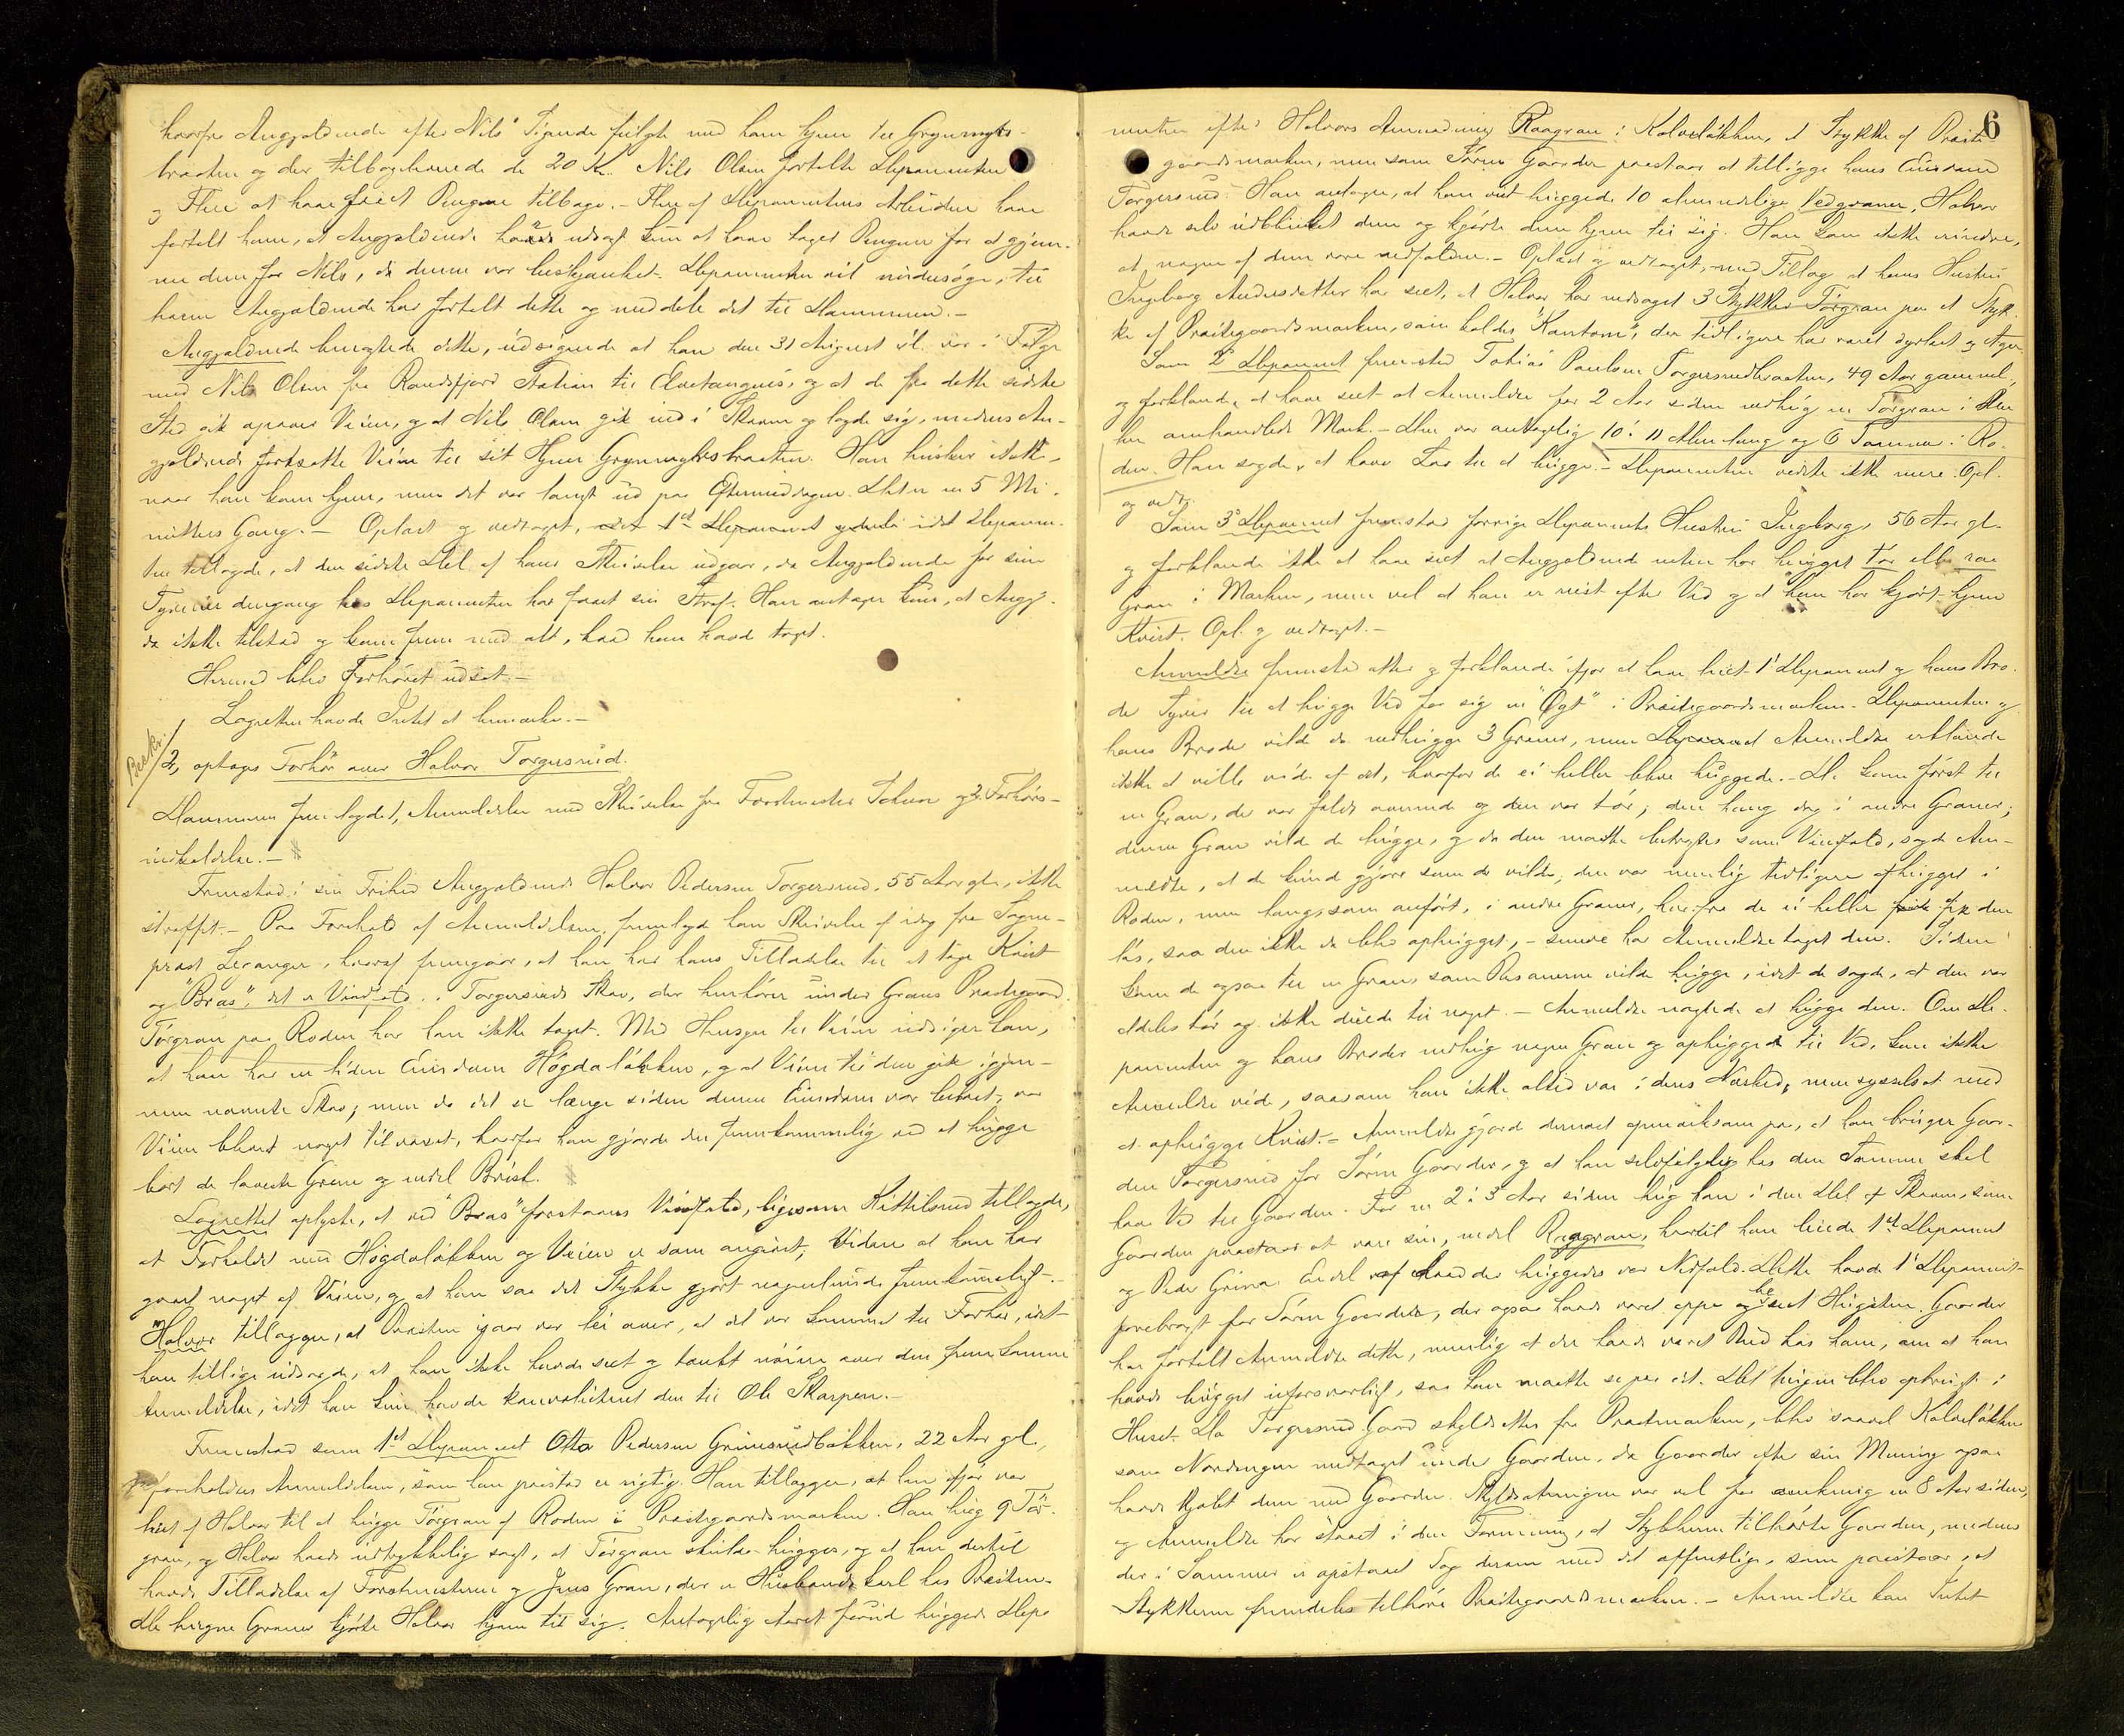 hvorfra Angjældende efter Nils' Sigende fulgte med ham hjem til Grynmyrs-
braaten og der tilbageleverede de 20 Kr. Nils Olsen fortalte Deponenten
og Flere at have faaet Pengene tilbage. – Flere af Deponentens Arbeidere have
fortalt ham, at Angjældende havde udsagt kun at have taget Pengene for at gjem-
me dem for Nils, da denne var beskjænket. Deponenten vil undersøge, til
hvem Angjældende har fortalt dette og meddele det til Dommeren. –
Angjældende benegtede dette, udsigende at han den 31 August d. A. var i Følge
med Nils Olsen fra Randsfjord Station til og at de fra dette sidste
Sted gik opover Veien, og at Nils Olsen gik ind i Skoven og lagde sig, medens An-
gjældende fortsatte Veien til sit Hjem Grynmyrsbraaten. Han husker ikke
naar han kom hjem, men det var langt ud paa Eftermiddagen. Det er en 5 Mi-
nutters Gang. – Oplæst og vedtaget, idet Deponen-
ten tillagde, at den sidste Del af hans Skrivelse udgaar, da Angjældende for sine
Tyverier dengang hos Deponenten har faaet sin Straf. Han antager kun, at Angj.
da ikke tilstod og kom frem med alt, hvad han havde taget.
Hermed blev Forhøret udsat –
Lagretten havde Intet at bemærke. –
Beskr.
2, optages Forhør over Halvor Torgersrud.
Dommeren fremlagde 1, Anmeldelse med Skrivelse fra Forstmester og 2, Forhørs-
indkaldelse. –
Fremstod i sin Frihed Angjældende Halvor Pedersen Torgersrud, 55 Aar gl., ikke
straffet. – Paa Forehold af Anmeldelsen fremlagde han Skrivelse af idag fra Sogne-
præst hvoraf fremgaar, at han har hans Tilladelse til at tage Kvist
og "Bras", det er Vindfald, i Torgersruds Skov, der henhører under Grans Præstegaard.
Tørgran paa Roden har han ikke taget. Med Hensyn til Veien udsiger han,
at han har en liden Eiendom Høgdaløkken, og at Veien til den gik igjen-
nem nævnte Skov; men da det er længe siden denne Eiendom var beboet, var
Veien blevet noget tilvoxet, hvorfor han gjorde den fremkommelig ved at hugge
bort de laveste Grene og endel Brisk.
Lagrettet oplyste, at ved "Bras" forstaaes Vindfald, ligesom Kittilsrud tillagde,
at Forholdet med Høgdaløkken og Veien er som angivet, Viden at han har
gaaet noget af Veien, og at han saa det Stykke gjort nogenlunde fremkommeligt. –
Halvor tillægger, at Præsten igaar var lei over, at det var kommet til Forhør, idet
han tillige udsagde, at han ikke havde seet og tænkt nøiere over den fremkomne
Anmeldelse, idet han kun havde den til Ole Skarpen. –
Fremstod som 1st Deponent Otto Pedersen Grimsrudbakken, 22 Aar gl.,
foreholdtes Anmeldelsen, som han paastod er rigtig. Han tillægger, at han ifjor var
leiet af Halvor til at hugge Tørgran af Roden i Præstegaardsmarken. Han hug 9 Tør-
gran, og Halvor havde udtrykkelig sagt, at Tørgran skulde hugges, og at han dertil
havde Tilladelse af Forstmesteren og Jens Gran, der er Husbondskarl hos Præsten.
De hugne Graner kjørte Halvor hjem til sig. Antagelig Aaret forud huggede Depo
6
nenten efter Halvors Anmodning Raagran i Kalveløkken, et Stykke af Præste-
gaardsmarken, men som Søren Gaarder paastaar at tilligge hans Eiendom
Torgersrud. Han antager, at han vist huggede 10 almindelige Vedgraner, Halvor
havde selv udblinket dem og kjørte dem hjem til sig. Han kan ikke erindre,
at nogen af dem vare nedfaldne. – Oplæst og vedtaget, med Tillæg at hans Hustru
Ingeborg Andersdatter har seet, at Halvor har nedsaget 3 Stykker Tørgran paa et Styk-
ke af Præstegaardsmarken, som kaldes "Kantom", der tidligere har været dyrket og Ager.
Som 2d Deponent fremstod Tobias Paulsen Torgersrudbraaten, 49 Aar gammel,
og forklarede at have seet at Anmeldte for 2 Aar siden nedhug en Tørgran i den
her omhandlede Mark. – Den var antagelig 10 à 11 Alen lang og 6 Tommer i Ro-
den. Han sagde, at have Lov til at hugge. – Deponenten vidste ikke mere. Opl.
og vedtg.
Som 3d Deponent fremstod forrige Deponents Hustru Ingeborg, 56 Aar gl.
og forklarede ikke at have seet at Angjældende enten har hugget tør eller raa
Gran i Marken, men vel at han er reist efter Ved og at han har kjørt hjem
Kvist. Opl. og vedtaget. –
Anmeldte fremstod atter og forklarede ifjor at have leiet 1' Deponent og hans Bro-
der Syver til at hugge Ved for sig en "Øgt" i Præstegaardsmarken. Deponenten og
hans Broder vilde da nedhugge 3 Graner, men Anmeldte erklærede
ikke at ville vide af det, hvorfor de ei heller bleve huggede. – De kom først til
en Gran, der var faldt overende og den var tør; den hang dog i andre Graner;
denne Gran vilde de hugge, og da den maatte betragtes som Vindfald, sagde An-
meldte, at de kunde gjøre som de vilde; den var nemlig tidligere afhugget i
Roden, men hang som anført, i andre Graner, hvorfra de ei heller fik den
løs, saa den ikke da blev ophugget, – senere har Anmeldte taget den. Siden
kom de ogsaa til en Gran, som Personerne vilde hugge, idet de sagde, at den var
aldeles tør og ikke duede til noget. – Anmeldte nægtede at hugge den. Om De-
ponenten og hans Broder nedhug nogen Gran og ophuggede til Ved, kan ikke
Anmeldte vide, saasom han ikke altid var i deres Nærhed, men sysselsat med
at ophugge Kvist. – Anmeldte gjorde dernæst opmærksom paa, at han bruger Gaar-
den Torgersrud for Søren Gaarder, og at han selvfølgelig hos den Samme skal
have Ved til Gaarden. For en 2 à 3 Aar siden hug han i den Del af Skoven, som
Gaarden paastaar at være sin, endel Raagran, hvortil han leiede 1st Deponent
og Peder Grina. Endel af hvad der huggedes var Nedfald. Dette havde 1' Deponent
forebragt for Søren Gaarder, der ogsaa havde været oppe og beseet Hugsten. Gaarder
har fortalt Anmeldte dette, nemlig at der havde været Bud hos ham, om at han
havde hugget uforsvarligt, saa han maatte se paa det. Det hugne blev opbrugt i
Huset. Da Torgersrud Gaard skyldsattes fra Præstmarken, blev saavel Kalveløkken
som Nordengen medtaget under Gaarden, da Gaarder efter sin Mening ogsaa
havde kjøbt dem med Gaarden. Skyldsætningen var vel for omkring en 8 Aar siden,
og Anmeldte har staaet i den Formening, at Stykkerne tilhørte Gaarden, medens
der i Sommer er opstaaet Sag derom med det offentlige, som paastaar, at
Stykkerne fremdeles tilhøre Præstegaardsmarken. – Anmeldte kan Intet